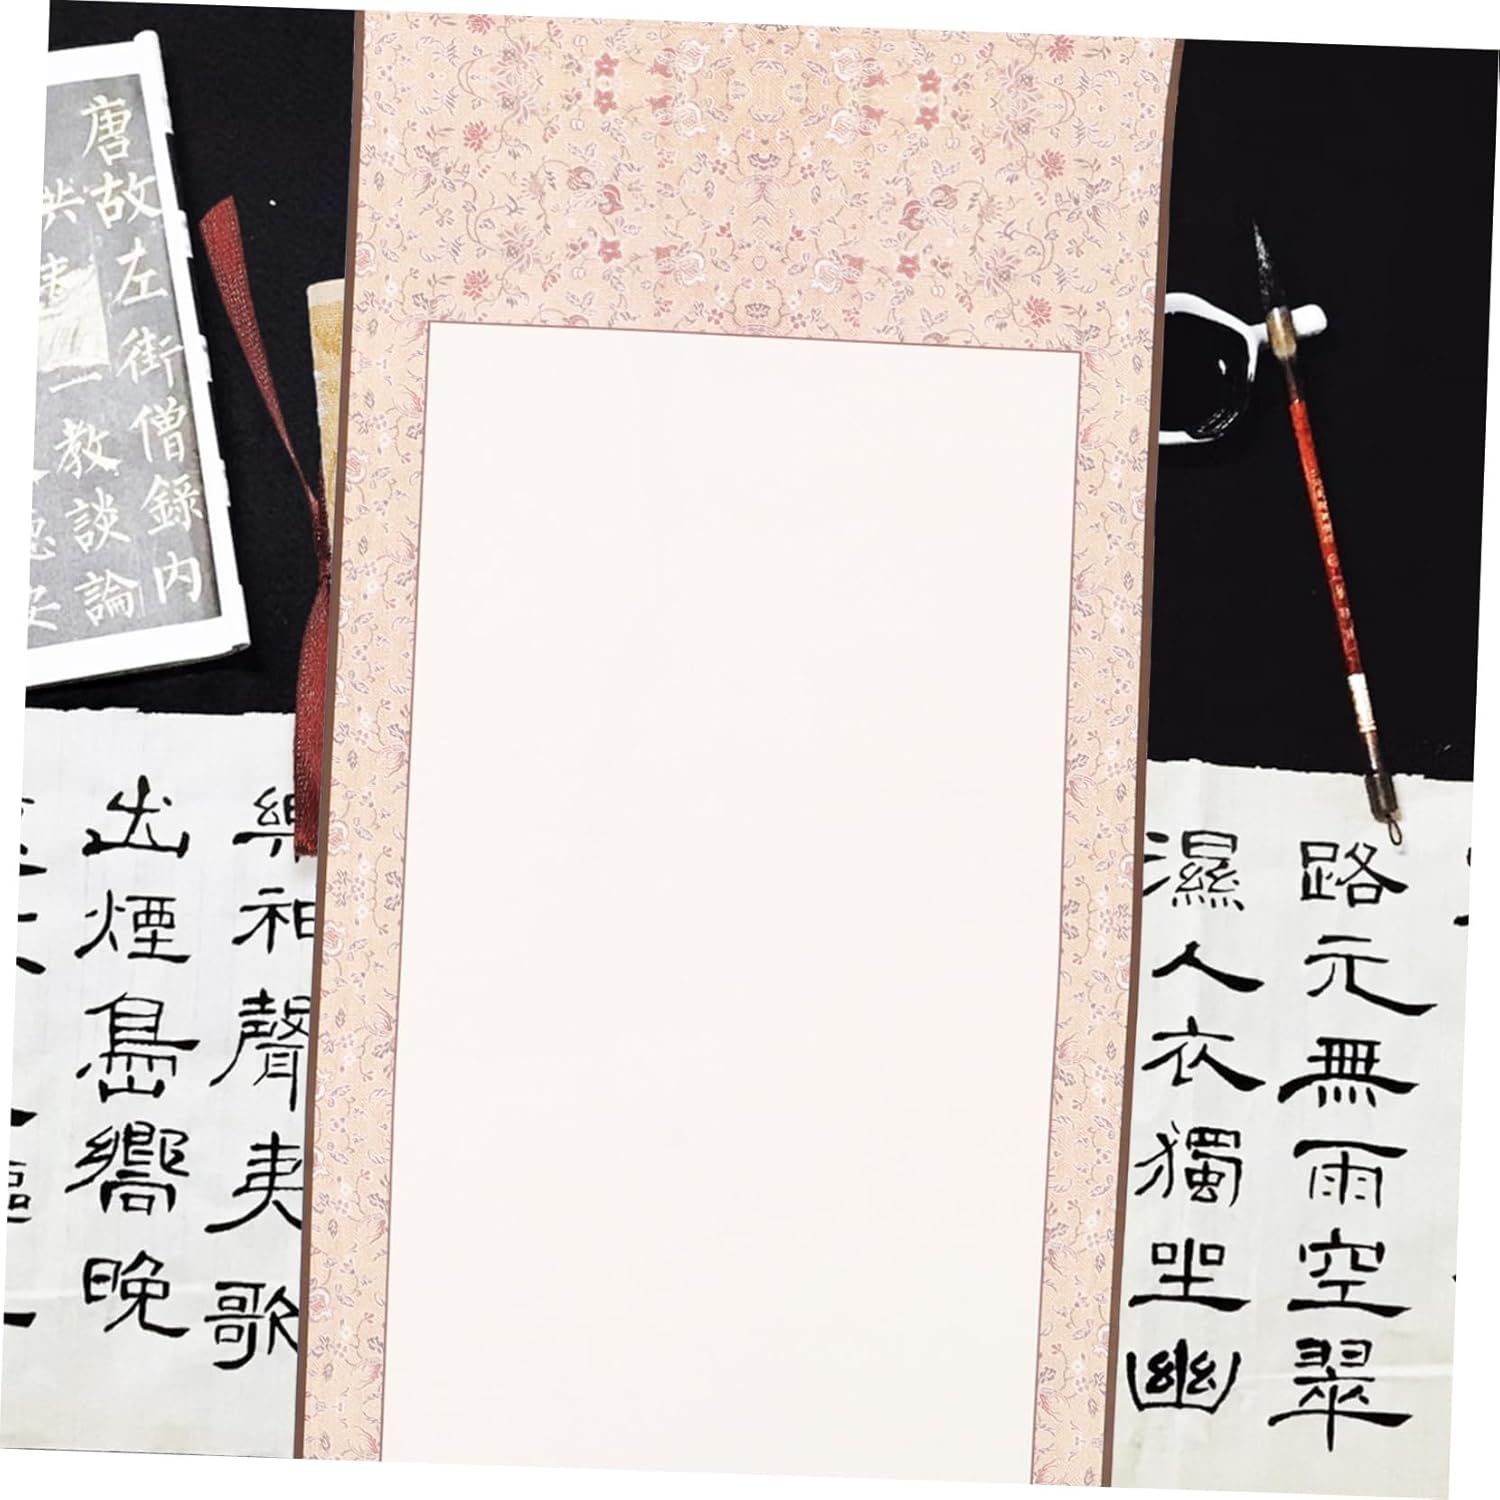 唐故左街僧録内
教談論
安
路元無雨空翠
濕人衣獨坐幽
和聲夷歌
出煙島嚮晚